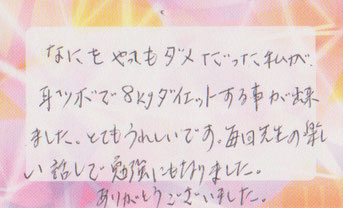 なにをやってもダメだった私が、
耳ツボで8kgダイエットする事が出来
ました。とてもうれしいです。毎回先生の楽し
い話しで勉強にもなりました。
ありがとうございました。